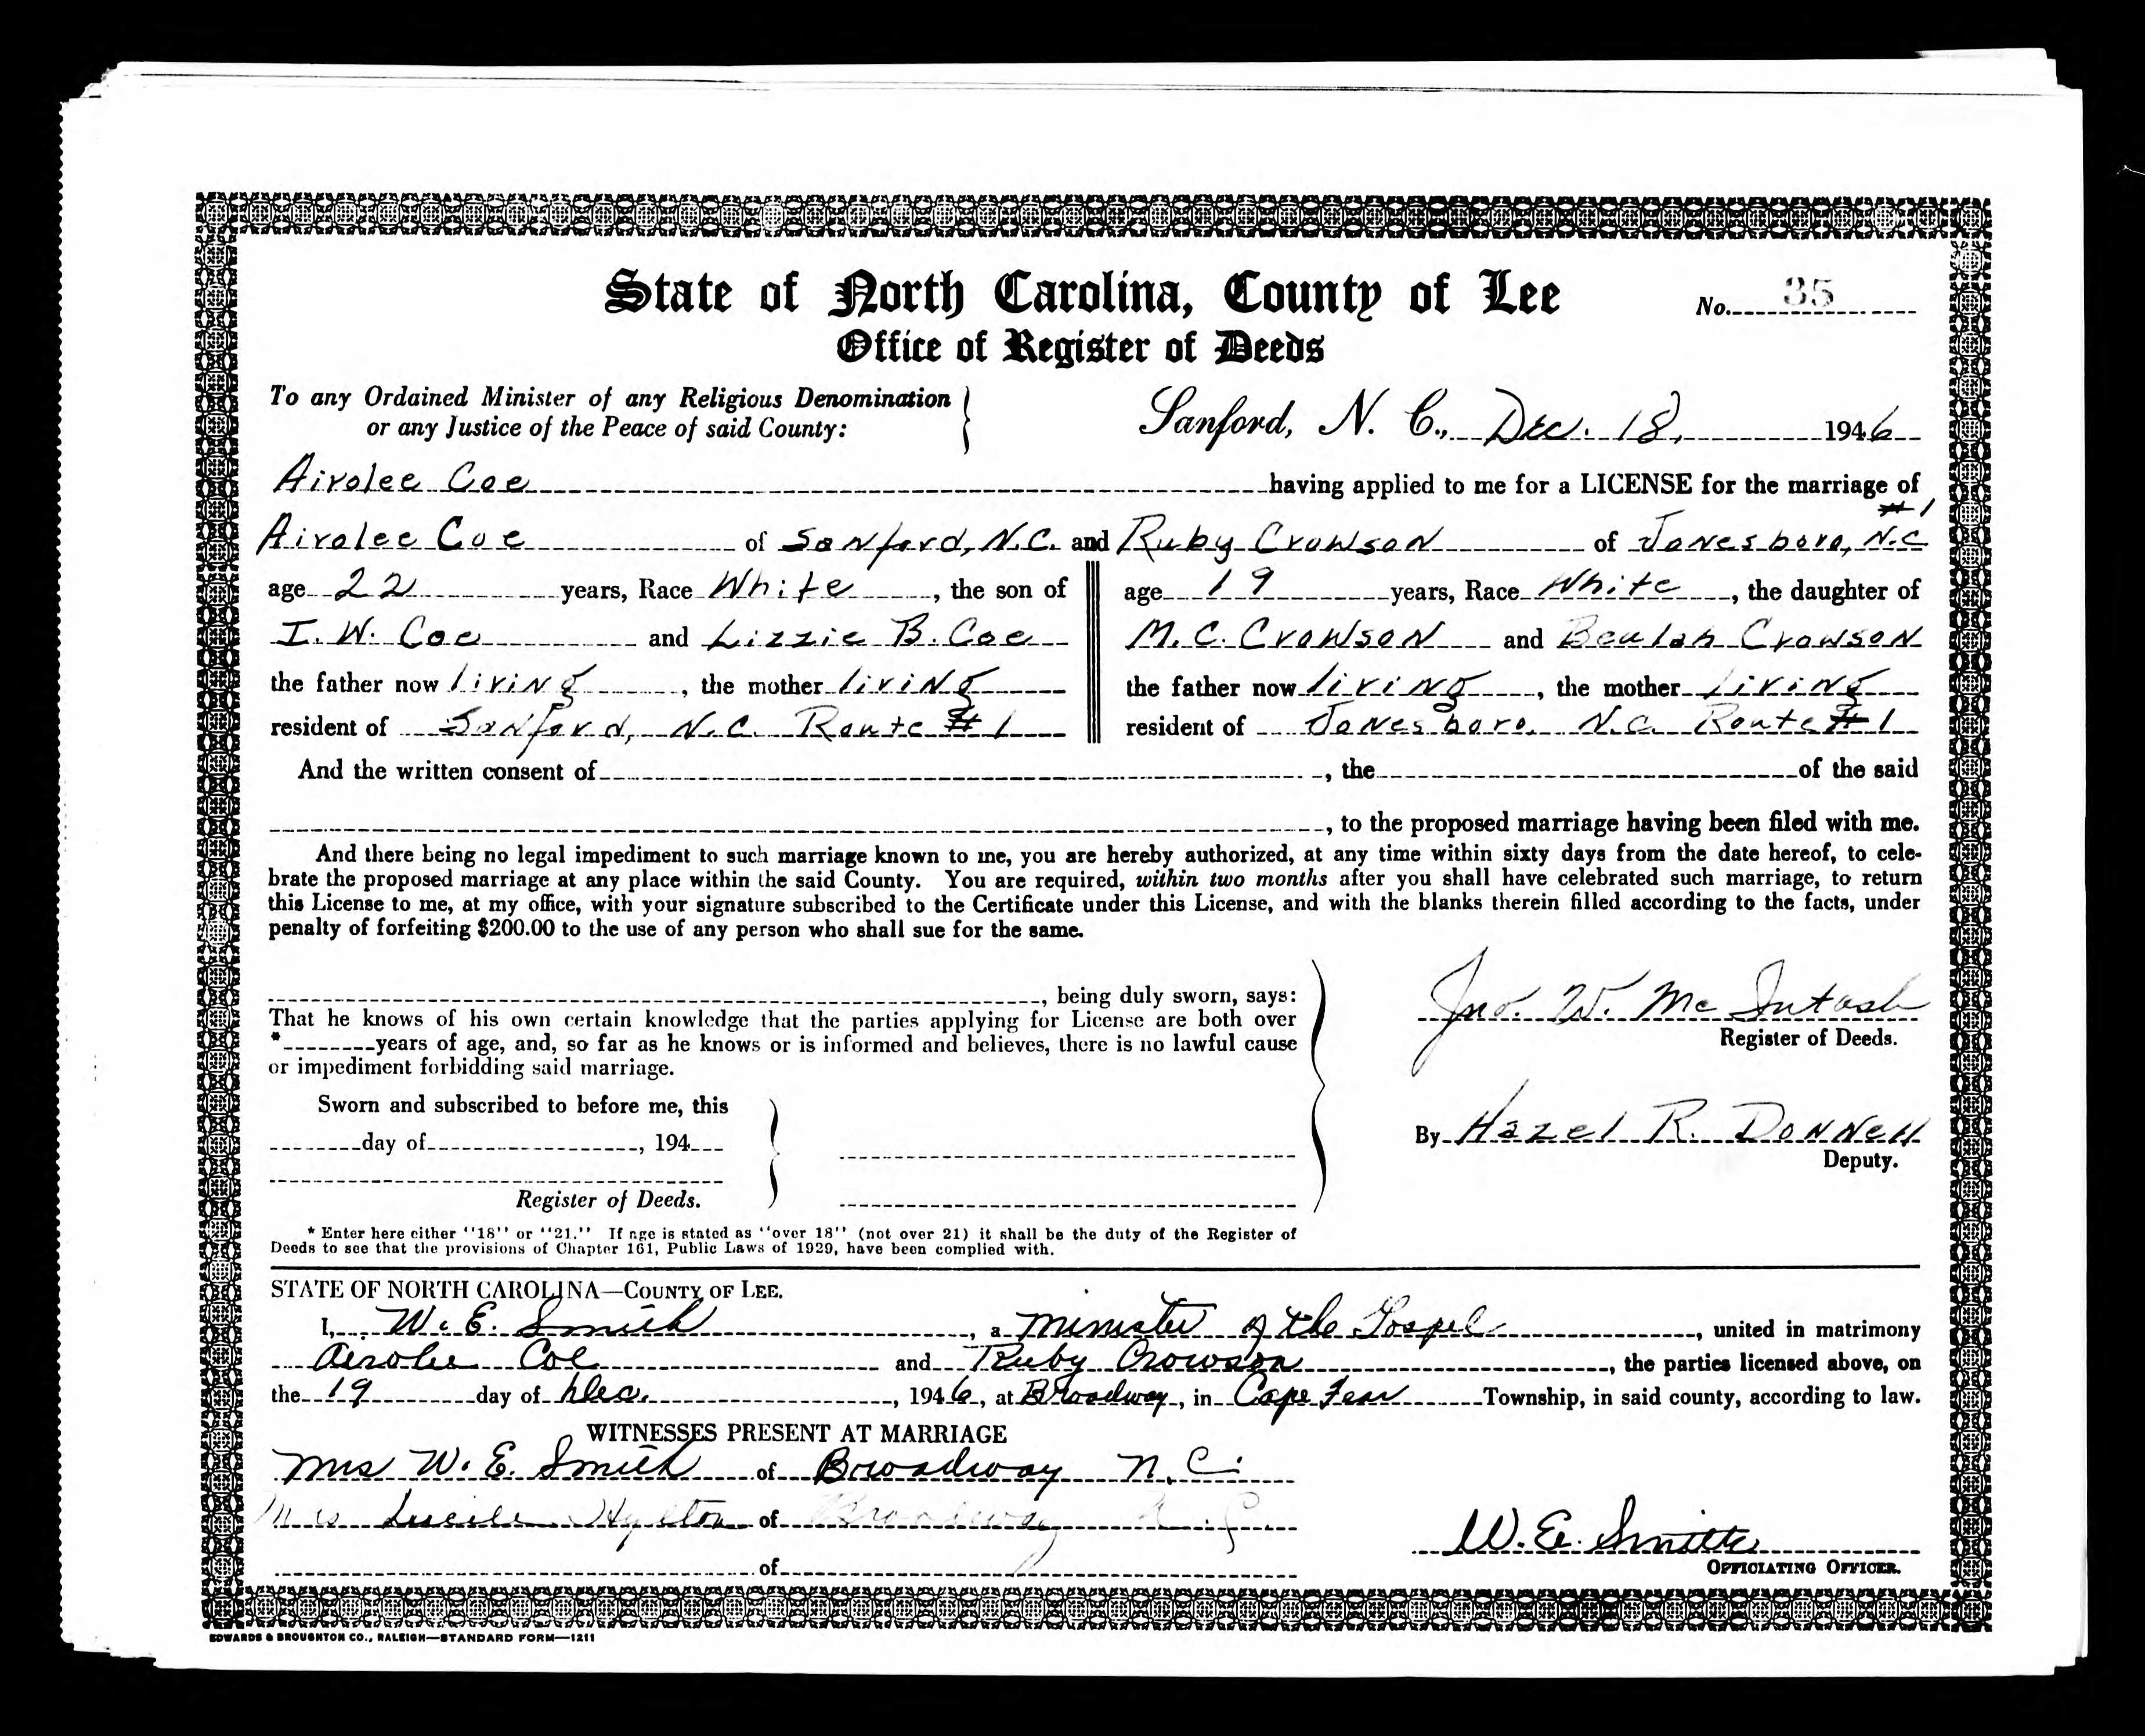 State of North Carolina, County of Lee
No. 35
Office of Register of Deeds
To any Ordained Minister of any Religious Denomination
or any Justice of the Peace of said County:
Sanford, N. C., Dec. 18, 1946
Airolee Coe having applied to me for a LICENSE for the marriage of
Airolee Coe of Sanford, N.C. and Ruby Crowson of #1 Jonesboro, N.C
age 22 years, Race White, the son of
I. W. Coe and Lizzie B. Coe
the father now living, the mother living
resident of Sanford, N.C. Route #1
age 19 years, Race White, the daughter of
M. C. Crowson and Beulah Crowson
the father now living, the mother living
resident of Jonesboro, N.C. Route #1
And the written consent of , the of the said
, to the proposed marriage having been filed with me.
And there being no legal impediment to such marriage known to me, you are hereby authorized, at any time within sixty days from the date hereof, to cele-
brate the proposed marriage at any place within the said County. You are required, within two months after you shall have celebrated such marriage, to return
this License to me, at my office, with your signature subscribed to the Certificate under this License, and with the blanks therein filled according to the facts, under
penalty of forfeiting $200.00 to the use of any person who shall sue for the same.
, being duly sworn, says:
That he knows of his own certain knowledge that the parties applying for License are both over
* years of age, and, so far as he knows or is informed and believes, there is no lawful cause
or impediment forbidding said marriage.
Sworn and subscribed to before me, this
day of , 194
Register of Deeds.
Jno. W. McIntosh
Register of Deeds.
By Hazel R. Donnell
Deputy.
* Enter here either "18" or "21." If age is stated as "over 18" (not over 21) it shall be the duty of the Register of
Deeds to see that the provisions of Chapter 161, Public Laws of 1929, have been complied with.
STATE OF NORTH CAROLINA—COUNTY OF LEE.
I, W. E. Smith, a minister of the Gospel, united in matrimony
Airolee Coe and Ruby Crowson, the parties licensed above, on
the 19 day of Dec., 1946, at Broadway, in Cape Fear Township, in said county, according to law.
WITNESSES PRESENT AT MARRIAGE
Mrs W. E. Smith of Broadway N.C.
Mrs Lucile Hylton of Broadway N.C.
of
W. E. Smith
OFFICIATING OFFICER.
EDWARDS & BROUGHTON CO., RALEIGH—STANDARD FORM—1211